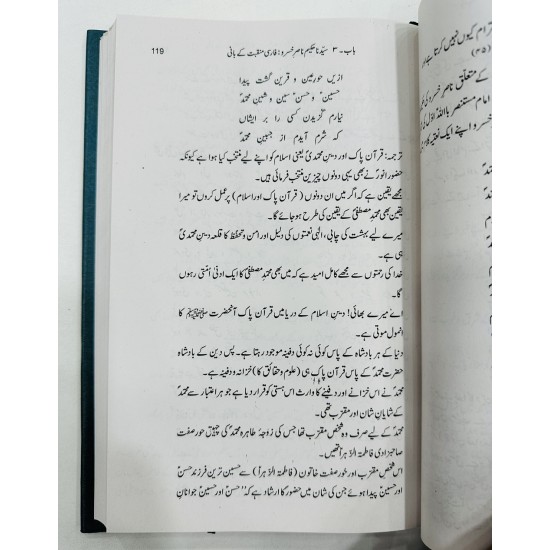 باب۔ ۳ سیّدنا حکیم ناصر خسرو: فارسی منقبت کے بانی 119
ازیں حورِ عین و قرین گشت پیدا
حسینؑ و حسنؑ سین و شینِ محمدؐ
نیارم گزیدن کسی را بر ایشاں
کہ شرم آیدم از جبینِ محمدؐ
ترجمہ: قرآنِ پاک اور دینِ محمدیؐ یعنی اسلام کو اپنے لیے منتخب کیا ہوا ہے کیونکہ
حضورِ انورؐ نے بھی یہی دونوں چیزیں منتخب فرمائی ہیں۔
مجھے یقین ہے کہ اگر میں ان دونوں (قرآنِ پاک اور اسلام) پر عمل کروں تو میرا
یقین بھی محمد مصطفیٰؐ کے یقین کی طرح ہو جائے گا۔
میرے لیے بہشت کی چابی، الٰہی نعمتوں کی دلیل اور امن و تحفظ کا قلعہ دینِ محمدیؐ
ہی ہے۔
خدا کی رحمتوں سے مجھے کامل امید ہے کہ میں بھی محمد مصطفیٰؐ کا ایک ادنیٰ اُمتی رہوں
گا۔
اے میرے بھائی! دینِ اسلام کے دریا میں قرآنِ پاک آنحضرت ﷺ کا
انمول موتی ہے۔
دنیا کے ہر بادشاہ کے پاس کوئی نہ کوئی دفینہ موجود رہتا ہے۔ پس دین کے بادشاہ
حضرت محمدؐ کے پاس قرآنِ پاک ہی (علوم و حقائق کا) خزانہ و دفینہ ہے۔
محمدؐ نے اس خزانے اور دفینے کا وارث اس ہستی کو قرار دیا ہے جو ہر اعتبار سے محمدؐ
کے شایانِ شان اور مقرّب تھی۔
محمدؐ کے لیے صرف وہ شخص مقرّب تھا جس کی زوجۂ طاہرہ محمدؐ کی چہیتی حور صفت
صاحبزادی فاطمۃ الزہراؑ تھیں۔
اس شخصِ مقرّب اور حور صفت خاتون (فاطمۃ الزہراؑ) سے حسین ترین فرزند حسنؑ
اور حسینؑ پیدا ہوئے جن کی شان میں حضورؐ کا ارشاد ہے کہ "حسنؑ اور حسینؑ جوانانِ
قرام کیوں نہیں کرتا ہے اور
(۴۵)
کے متعلق ناصر خسرو کی
امام مستنصر باللہ اوّل کی
خسرو اپنے ایک